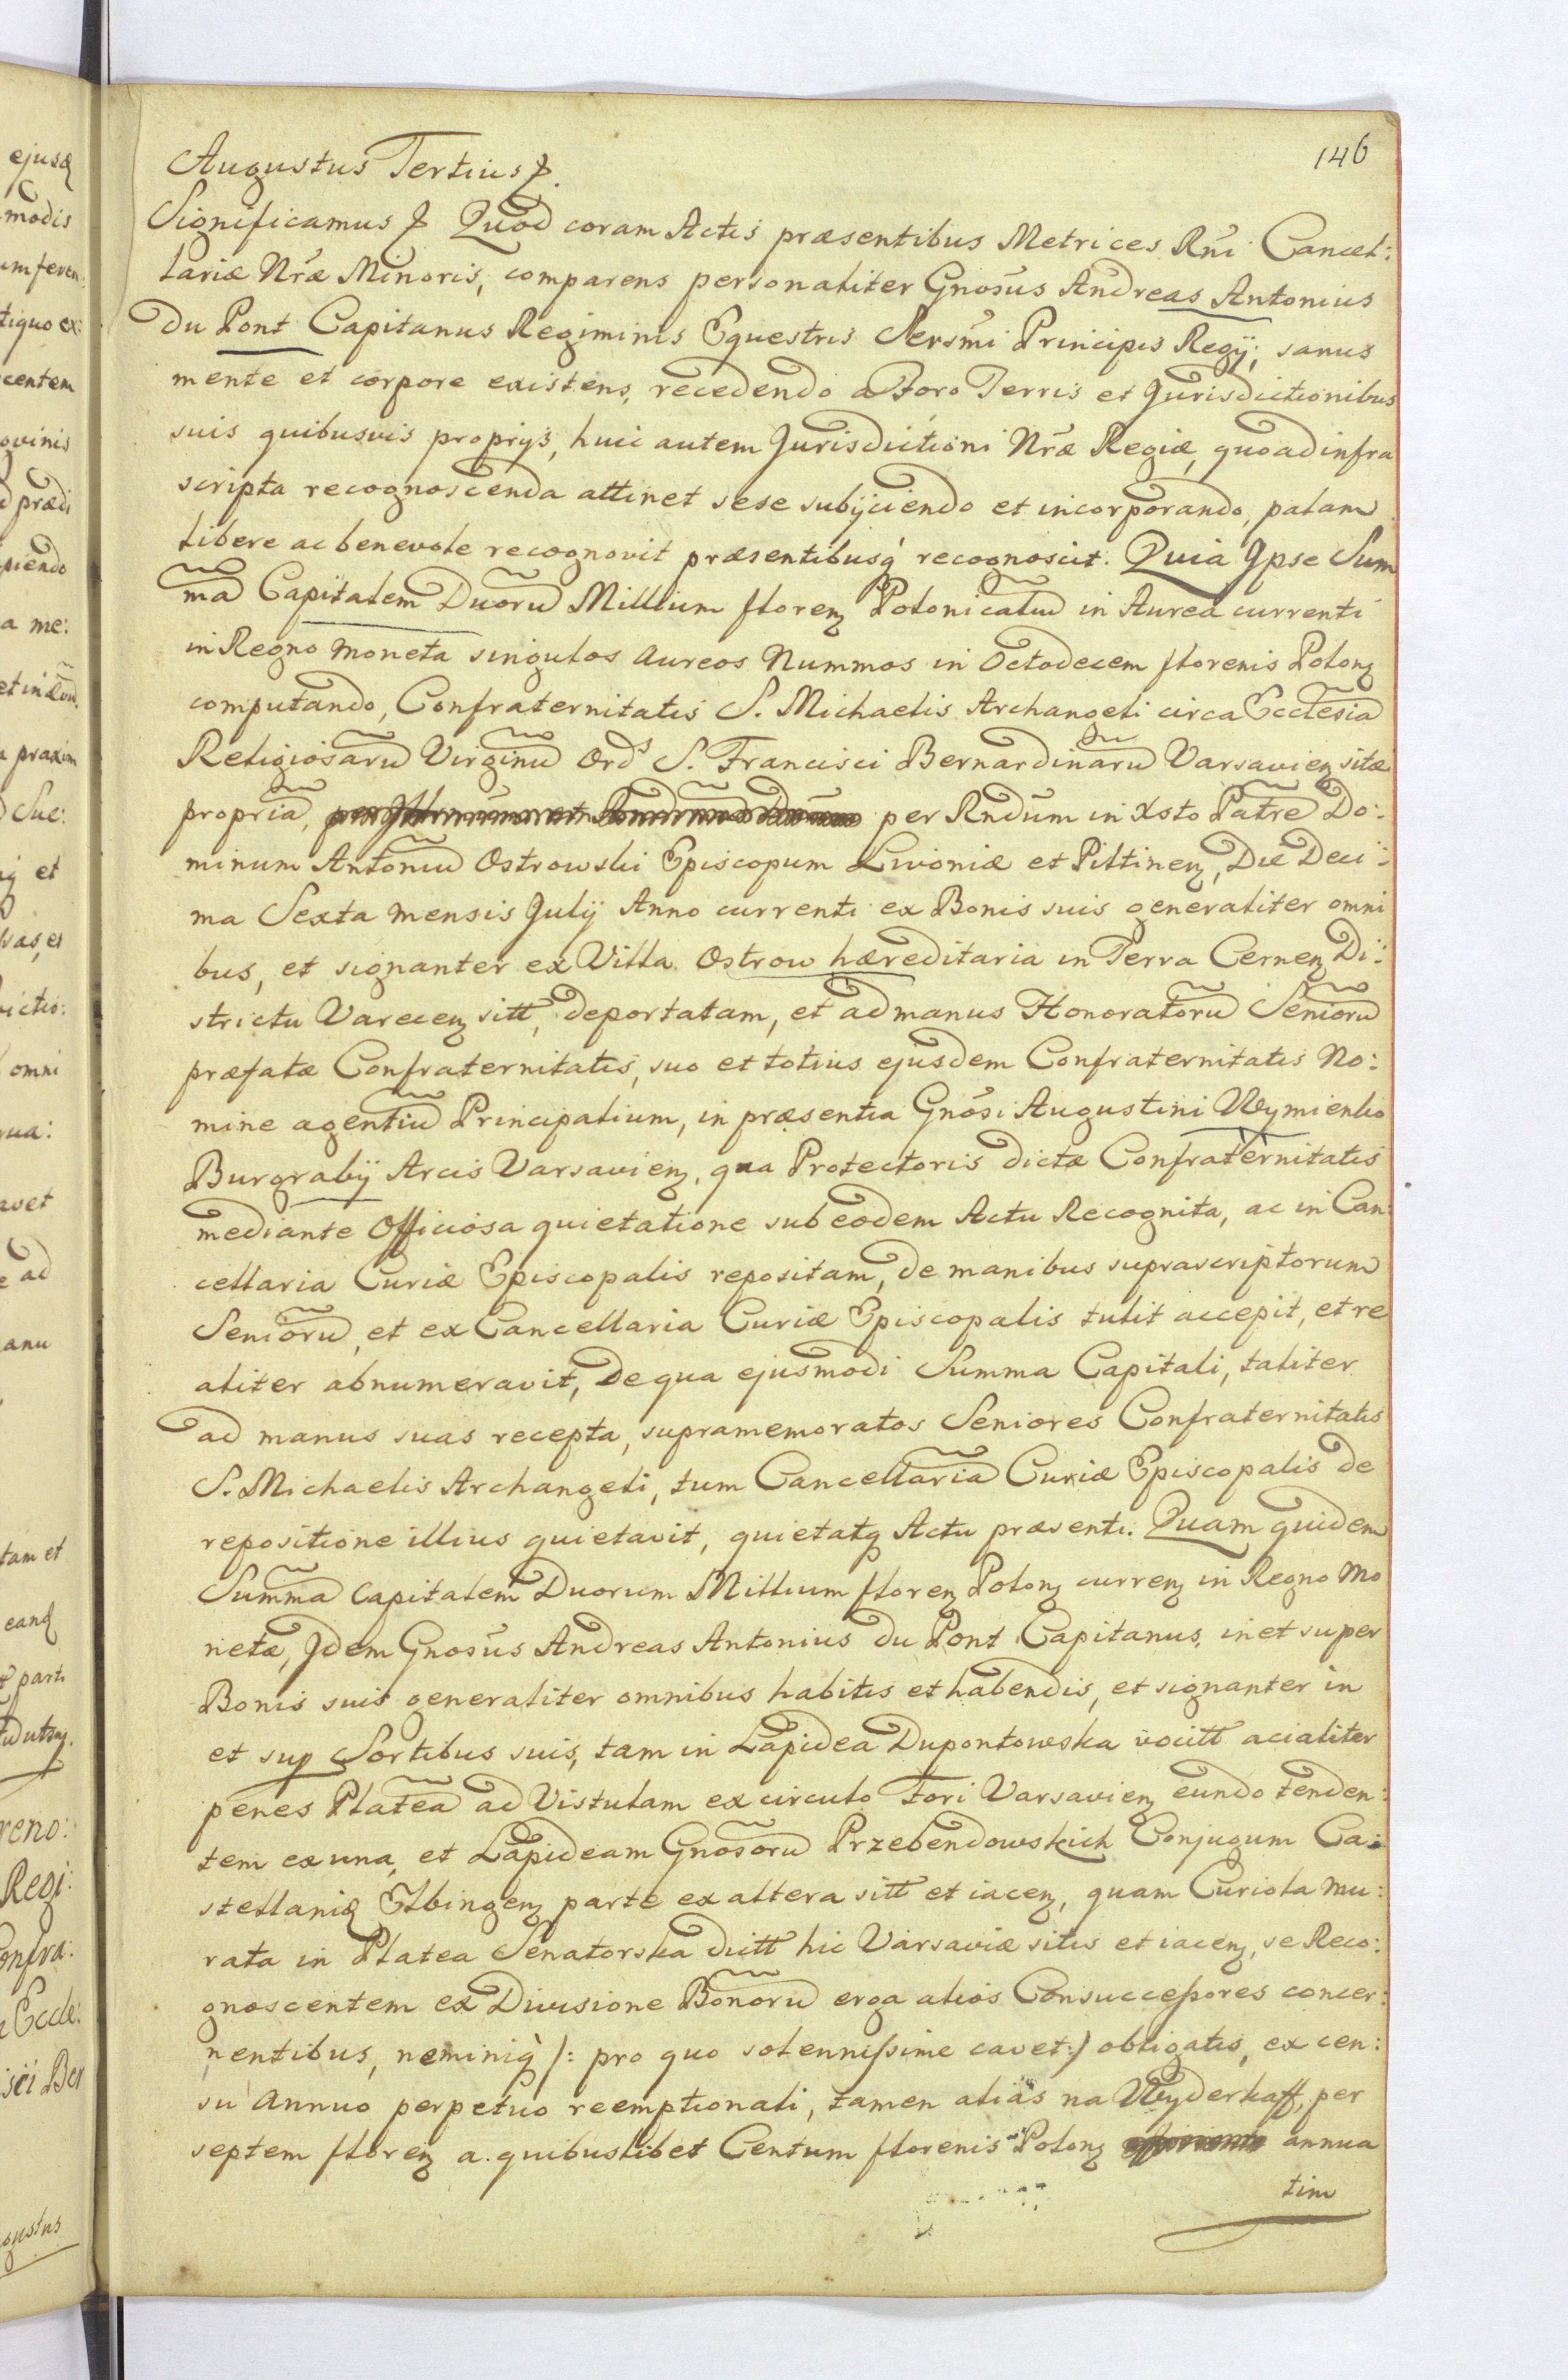 146
Augustus Tertius &.
Significamus & Quod coram Actis præsentibus Metrices Rni Cancel:
lariæ Nræ Minoris, comparens personaliter Gnosus Andreas Antonius
Du Pont Capitanus Regiminis Equestris Sersmi Principis Regij, sanus
mente et corpore existens, recedendo a Foro Terris et Jurisdictionibus
suis quibusvis proprijs, huic autem Jurisdictioni Nræ Regiæ, quoad infra
scripta recognoscenda attinet sese subijciendo et incorporando, palam
libere ac benevole recognovit præsentibusq recognoscit. Quia Ipse Sum
ma Capitalem Duoru Millium floren Polonicaliu in Aurea currenti
in Regno Moneta singulos Aureos Nummos in Octodecem florenis Polon
computando, Confraternitatis S. Michaelis Archangeli circa Ecclesia
Religiosaru Virginu Ord̃ S. Francisci Bernardinaru Varsavien sitæ
propria, per Rndum in Xsto Patre Do:
minum Antoniu Ostrowski Episcopum Livoniæ et Piltinen, Die Deci:
ma Sexta mensis Julij Anno currenti ex Bonis suis generaliter omni
bus, et signanter ex Villa Ostrow hæreditaria in Terra Cernen Di:
strictu Varecen sitt, deportatam, et ad manus Honoratoru Senioru
præfatæ Confraternitatis, suo et totius ejusdem Confraternitatis No:
mine agentiu Principalium, in præsentia Gnosi Augustini Wymienko
Burgrabij Arcis Varsavien, qua Protectoris dictæ Confraternitatis
mediante Officiosa quietatione sub eodem Actu Recognita, ac in Can:
cellaria Curiæ Episcopalis repositam, de manibus suprascriptorum
Senioru, et ex Cancellaria Curiæ Episcopalis tulit accepit, et re
aliter abnumeravit, De qua ejusmodi Summa Capitali, taliter
ad manus suas recepta, supramemoratos Seniores Confraternitatis
S. Michaelis Archangeli, tum Cancellaria Curiæ Episcopalis de
repositione illius quietavit, quietatq Actu præsenti. Quam quidem
Summa Capitalem Duorum Millium floren Polon curren in Regno Mo
netæ, Idem Gnosus Andreas Antonius du Pont Capitanus, in et super
Bonis suis generaliter omnibus habitis et habendis, et signanter in
et sup Sortibus suis, tam in Lapidea Dupontowska vocitt acialiter
penes Platea ad Vistulam ex circulo Fori Varsavien eundo tenden:
tem ex una, et Lapideam Gnosoru Przebendowskich Conjugum Ca:
stellaniq Elbingen parte ex altera sitt et iacen, quam Curiola mu:
rata in Platea Senatorska dictt hic Varsaviæ sitis et iacen, se Reco:
gnoscentem ex Divisione Bonoru erga alios Consuccessores concer:
nentibus, neminiq /: pro quo solennissime cavet :/ obligatis, ex cen:
su annuo perpetuo reemptionali, tamen alias na Wyderkaff, per
septem floren a quibuslibet Centum florenis Polon annua
tim